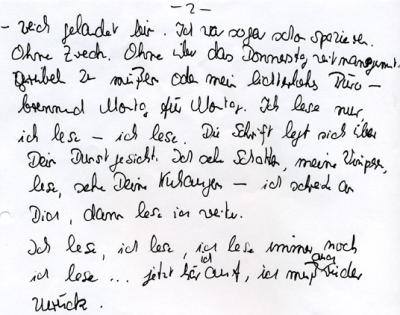 - 2 -
- reich gelandet bin. Ich war sogar schon spazieren.
Ohne Zweck. Ohne über das Donnerstag zeitmanagement
zu müßen oder mein lichterlohes Büro -
brennend Montag für Montag. Ich lese nur,
ich lese - ich lese. Die Schrift legt sich über
Dein Dunstgesicht. Ich sehe Schatten, meine Wimpern,
lese, sehe Deine Kuhaugen - ich schreibe an
Dich, dann lese ich weiter.
Ich lese, ich lese, ich lese immer noch
ich lese ... jetzt hör ich auf, ich muß auch wieder
zurück.